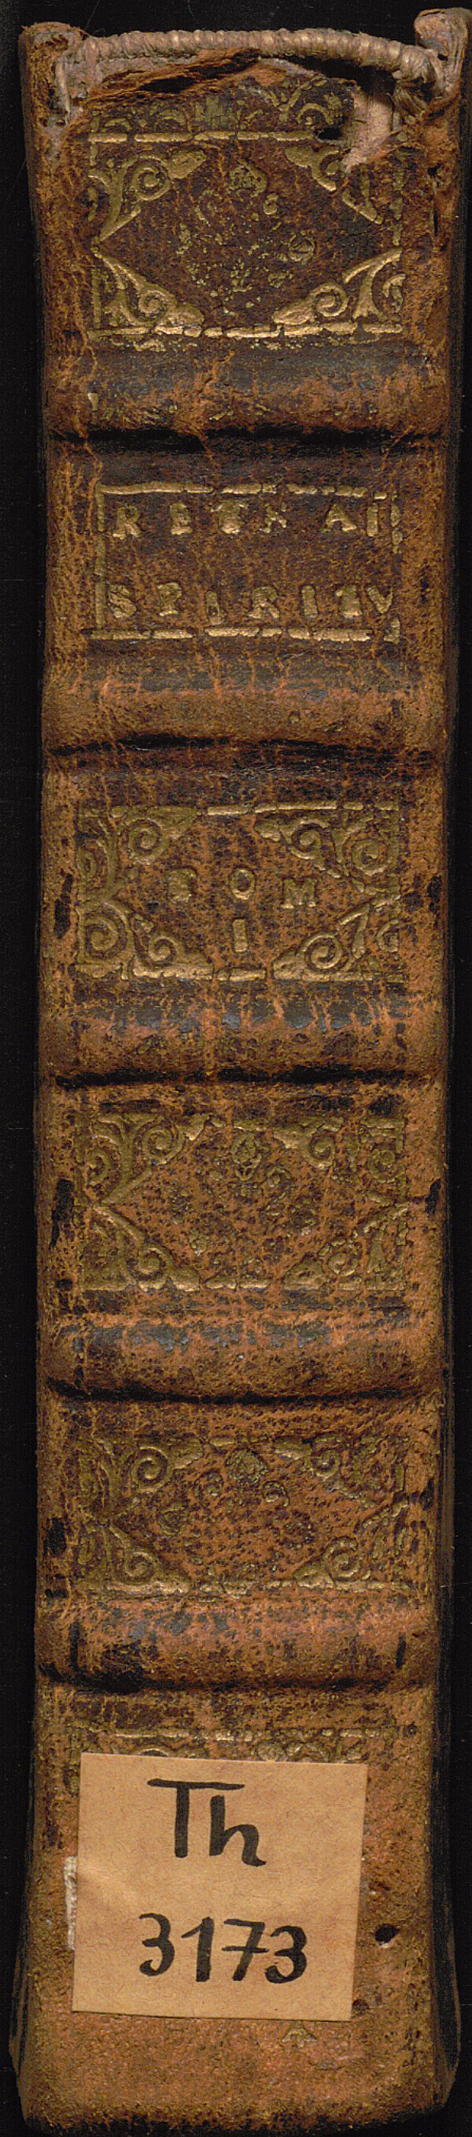 RETRAI
SPIRITV
TOM
I
Th
3173